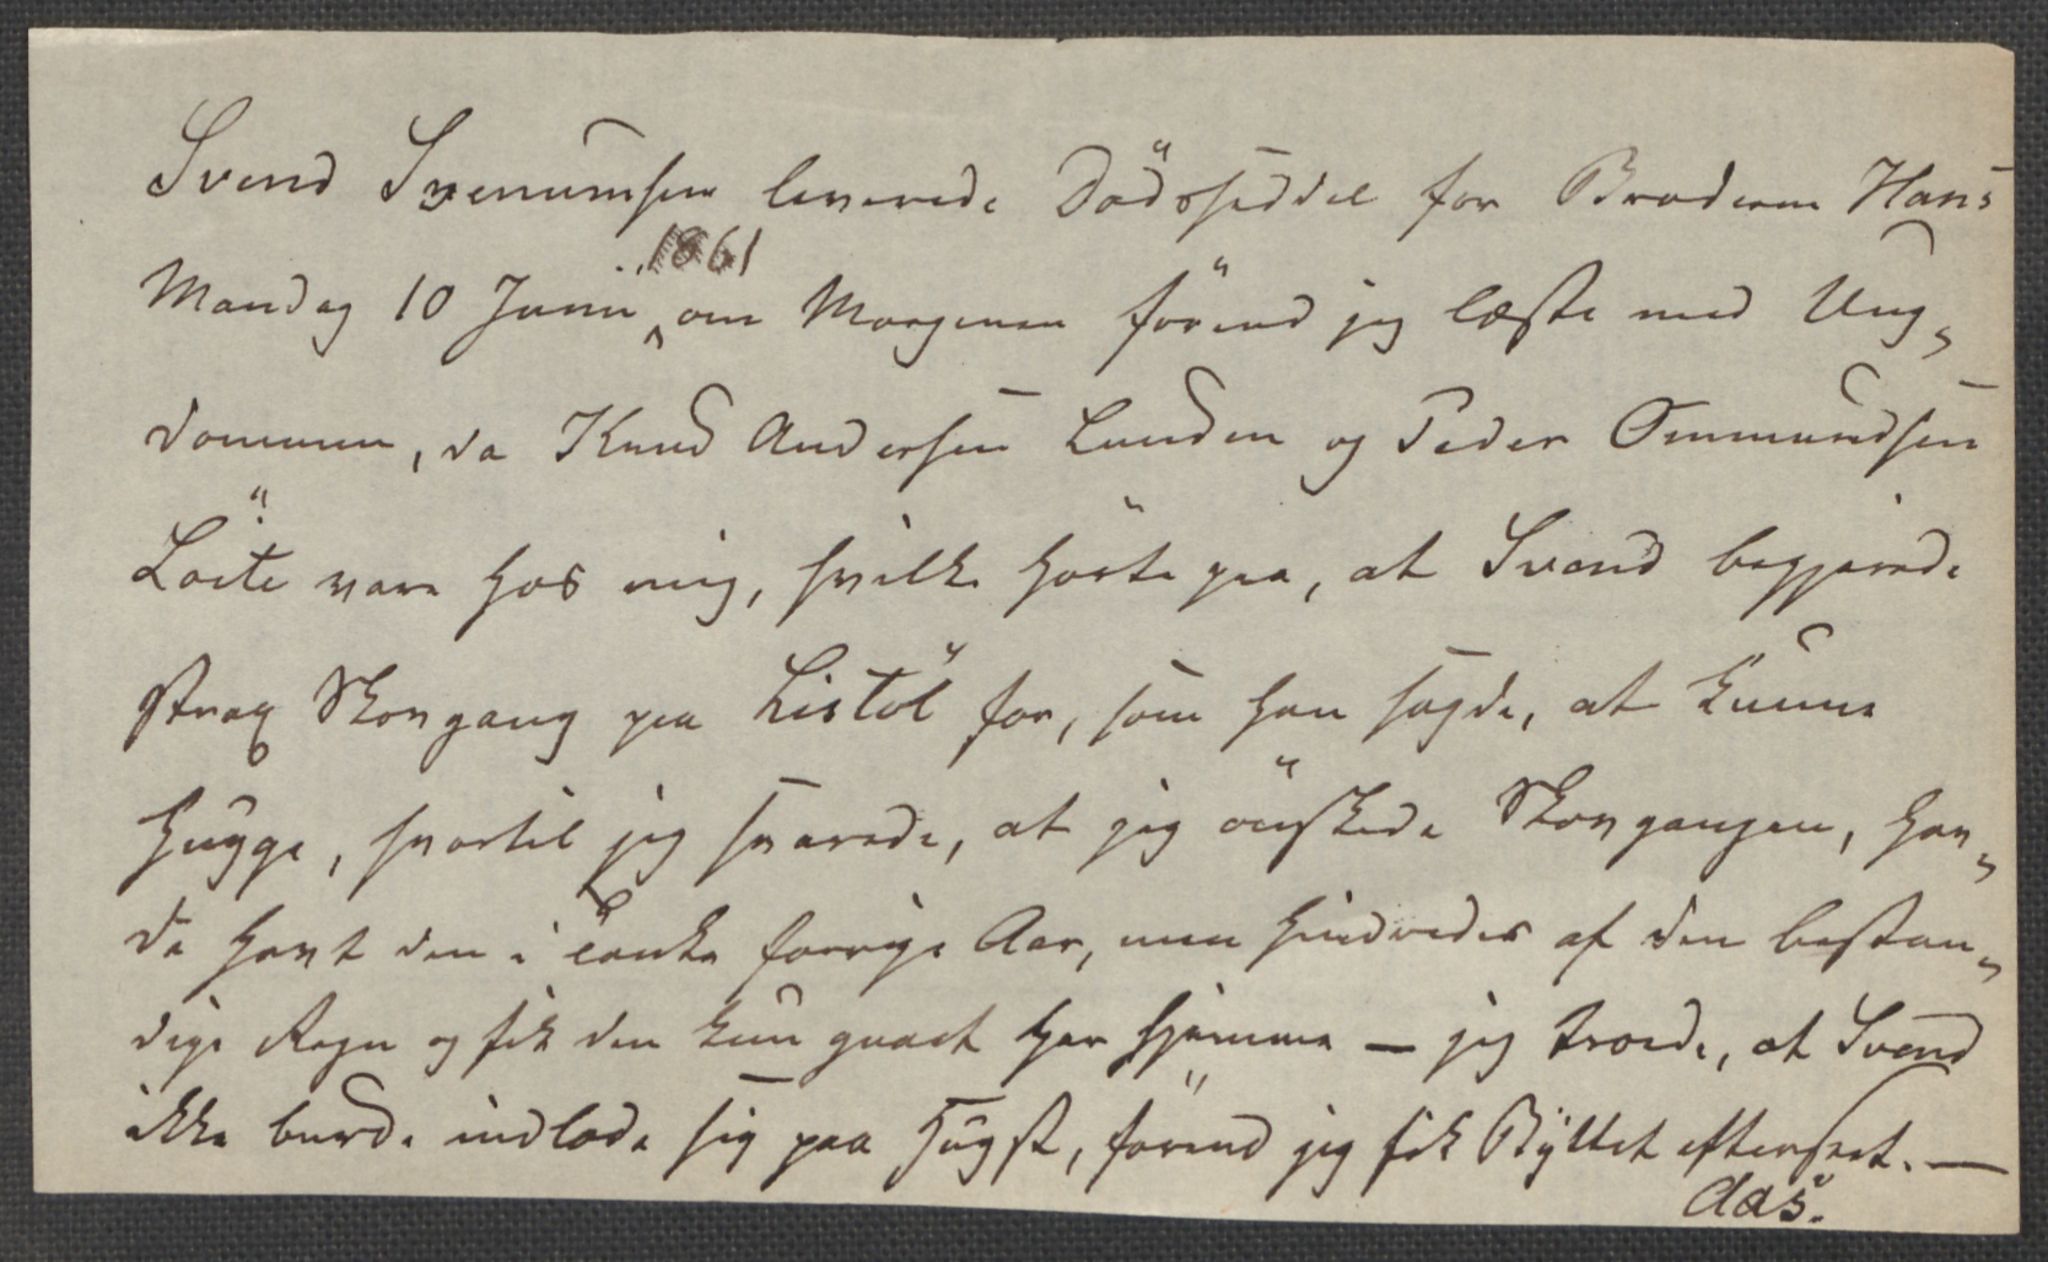 Svend Svenumsen leverede Dödsseddel for Broderen Hans
Mandag 10 Junii 1861 om Morgenen förend jeg læste med Ung-
dommen, da Knud Andersen Lunden og Peder Ommundsen
Löite vare hos mig, hvilke hörte paa, at Svend begjærede
strax Skovgang paa Listöl for, som han sagde, at kunne
hugge, hvortil jeg svarede, at jeg önskede Skovgangen, hav-
de havt den i tanke forrige Aar, men hindredes af den bestan-
dige Regn og fik den kun gaaet her hjemme — jeg troede, at Svend
ikke burde indlade sig paa Hugst, förend jeg fik Byttet efterseet. —
Aas.